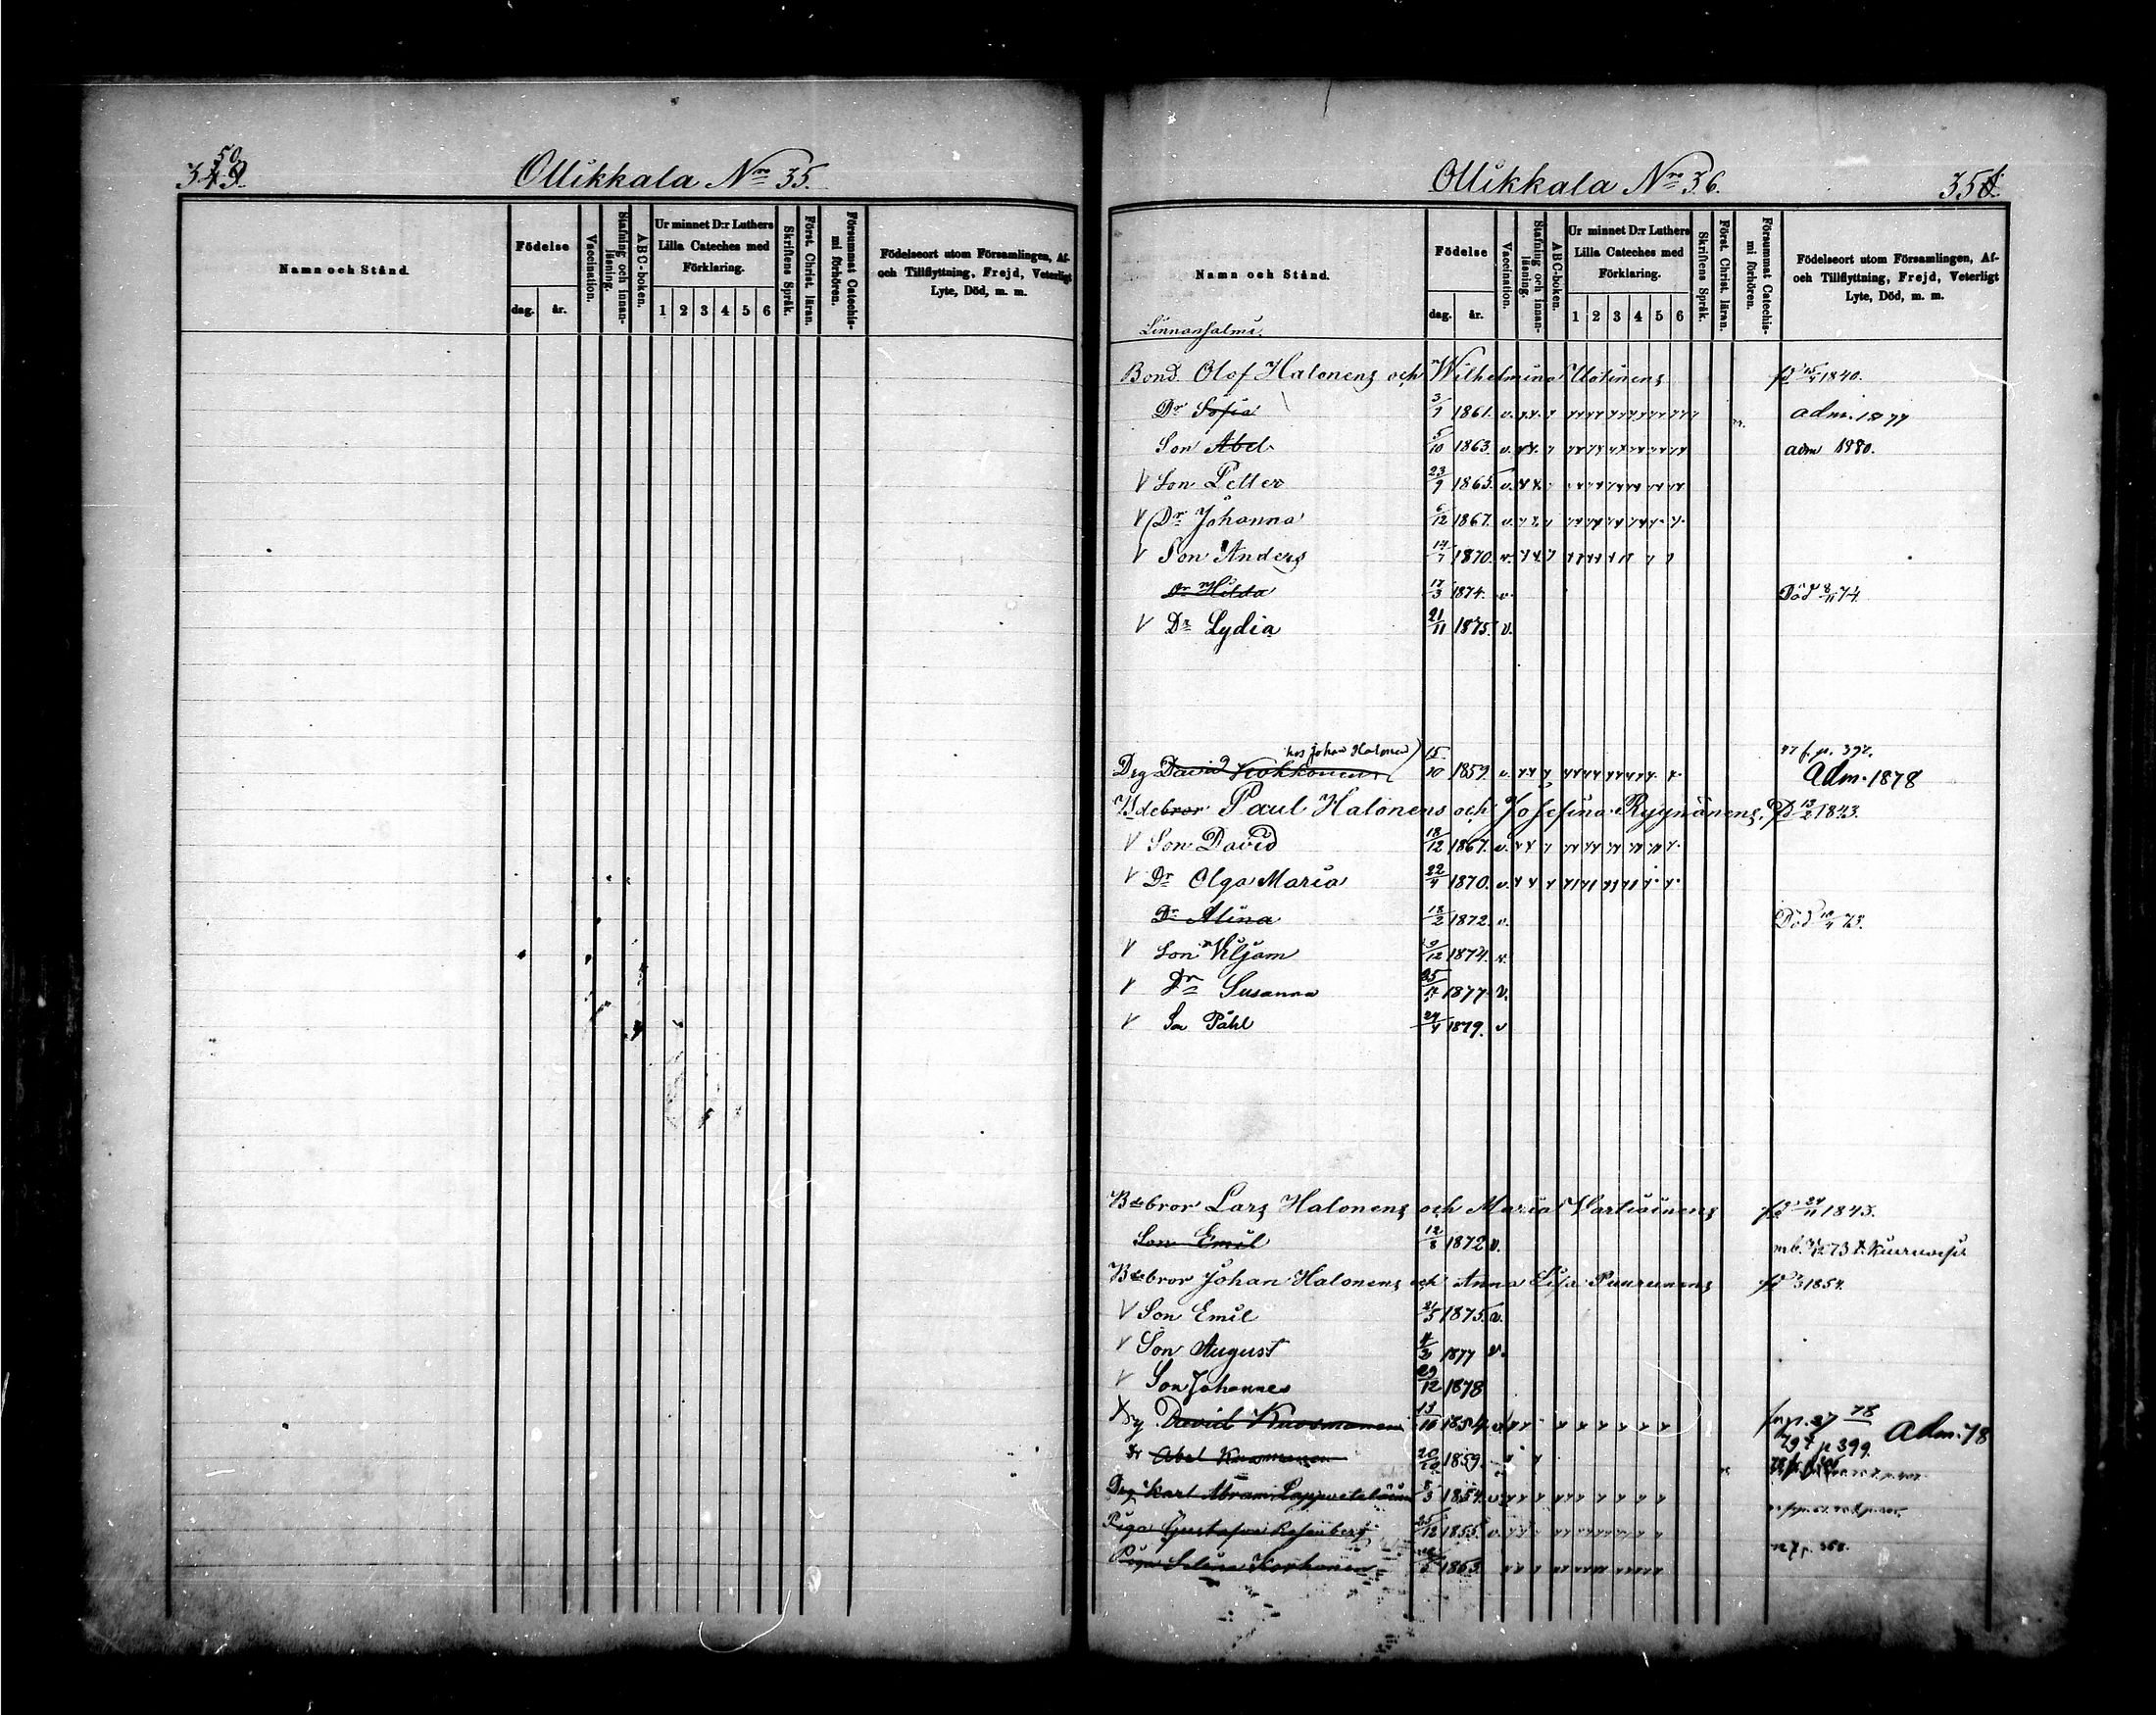 350
Ollikkala Nro 35.
Namn och Stånd.
Födelse
dag. år.
Vaccination.
Stafning och innanläsning.
ABC-boken.
Ur minnet D:r Luthers
Lilla Cateches med
Förklaring.
1 2 3 4 5 6
Skriftens Språk.
Först. Christ. läran.
Försummat Catechismi förhören.
Födelseort utom Församlingen, Af-
och Tillflyttning, Frejd, Veterligt
Lyte, Död, m. m.
Ollikkala Nro 36.
351
Namn och Stånd.
Födelse
dag. år.
Vaccination.
Stafning och innanläsning.
ABC-boken.
Ur minnet D:r Luthers
Lilla Cateches med
Förklaring.
1 2 3 4 5 6
Skriftens Språk.
Först. Christ. läran.
Försummat Catechismi förhören.
Födelseort utom Församlingen, Af-
och Tillflyttning, Frejd, Veterligt
Lyte, Död, m. m.
Linnansalmi.
Bond. Olof Halonens och Wilhelmina Uotinens 1840.
Dr Sofia 3/7 1861. v. adm. 1877
Son Abel 5/10 1863. v. adm 1880.
V Son Petter 23/9 1865. v.
V Dr Johanna 6/12 1867. v.
V Son Anders 17/7 1870. v.
Dr Hilda 17/3 1874. v. Död 8/11 74.
V Dr Lydia 21/11 1875. v.
hos Johan Halonen
Drg David Kokkonen 15/10 1859. v. 77 f. p. 397. Adm. 1878
Bdebror Paul Halonens och Josefina Ryynänens. 13/2 1843.
V Son David 18/12 1867. v.
V Dr Olga Maria 22/4 1870. v.
Dr Alina 18/2 1872. v. Död 10/4 73.
V Son Viljam 9/12 1874. v.
V Dr Susanna 25/ 1877. v.
V So Påhl 24/4 1879. v
Bdebror Lars Halonens och Maria Vartiainens 24/11 1845.
Son Emil 12/8 1872 v. mb. 73
Bdebror Johan Halonens och Anna Lisa Puurunens 1854.
V Son Emil 21/5 1875. v.
V Son August 4/3 1877 v.
V Son Johannes 29/12 1878
Drg David Kuosmanen 13/10 1854. v 78 Adm. 78
Dr Abel Kuosmanen 20/10 1859. 79 t p 399.
Drg Karl Abram Lappeteläinen 8/3 1854. v
Piga Gustafva Rosenberg 25/12 1855. v.
Piga Selina Korhonen 1863.